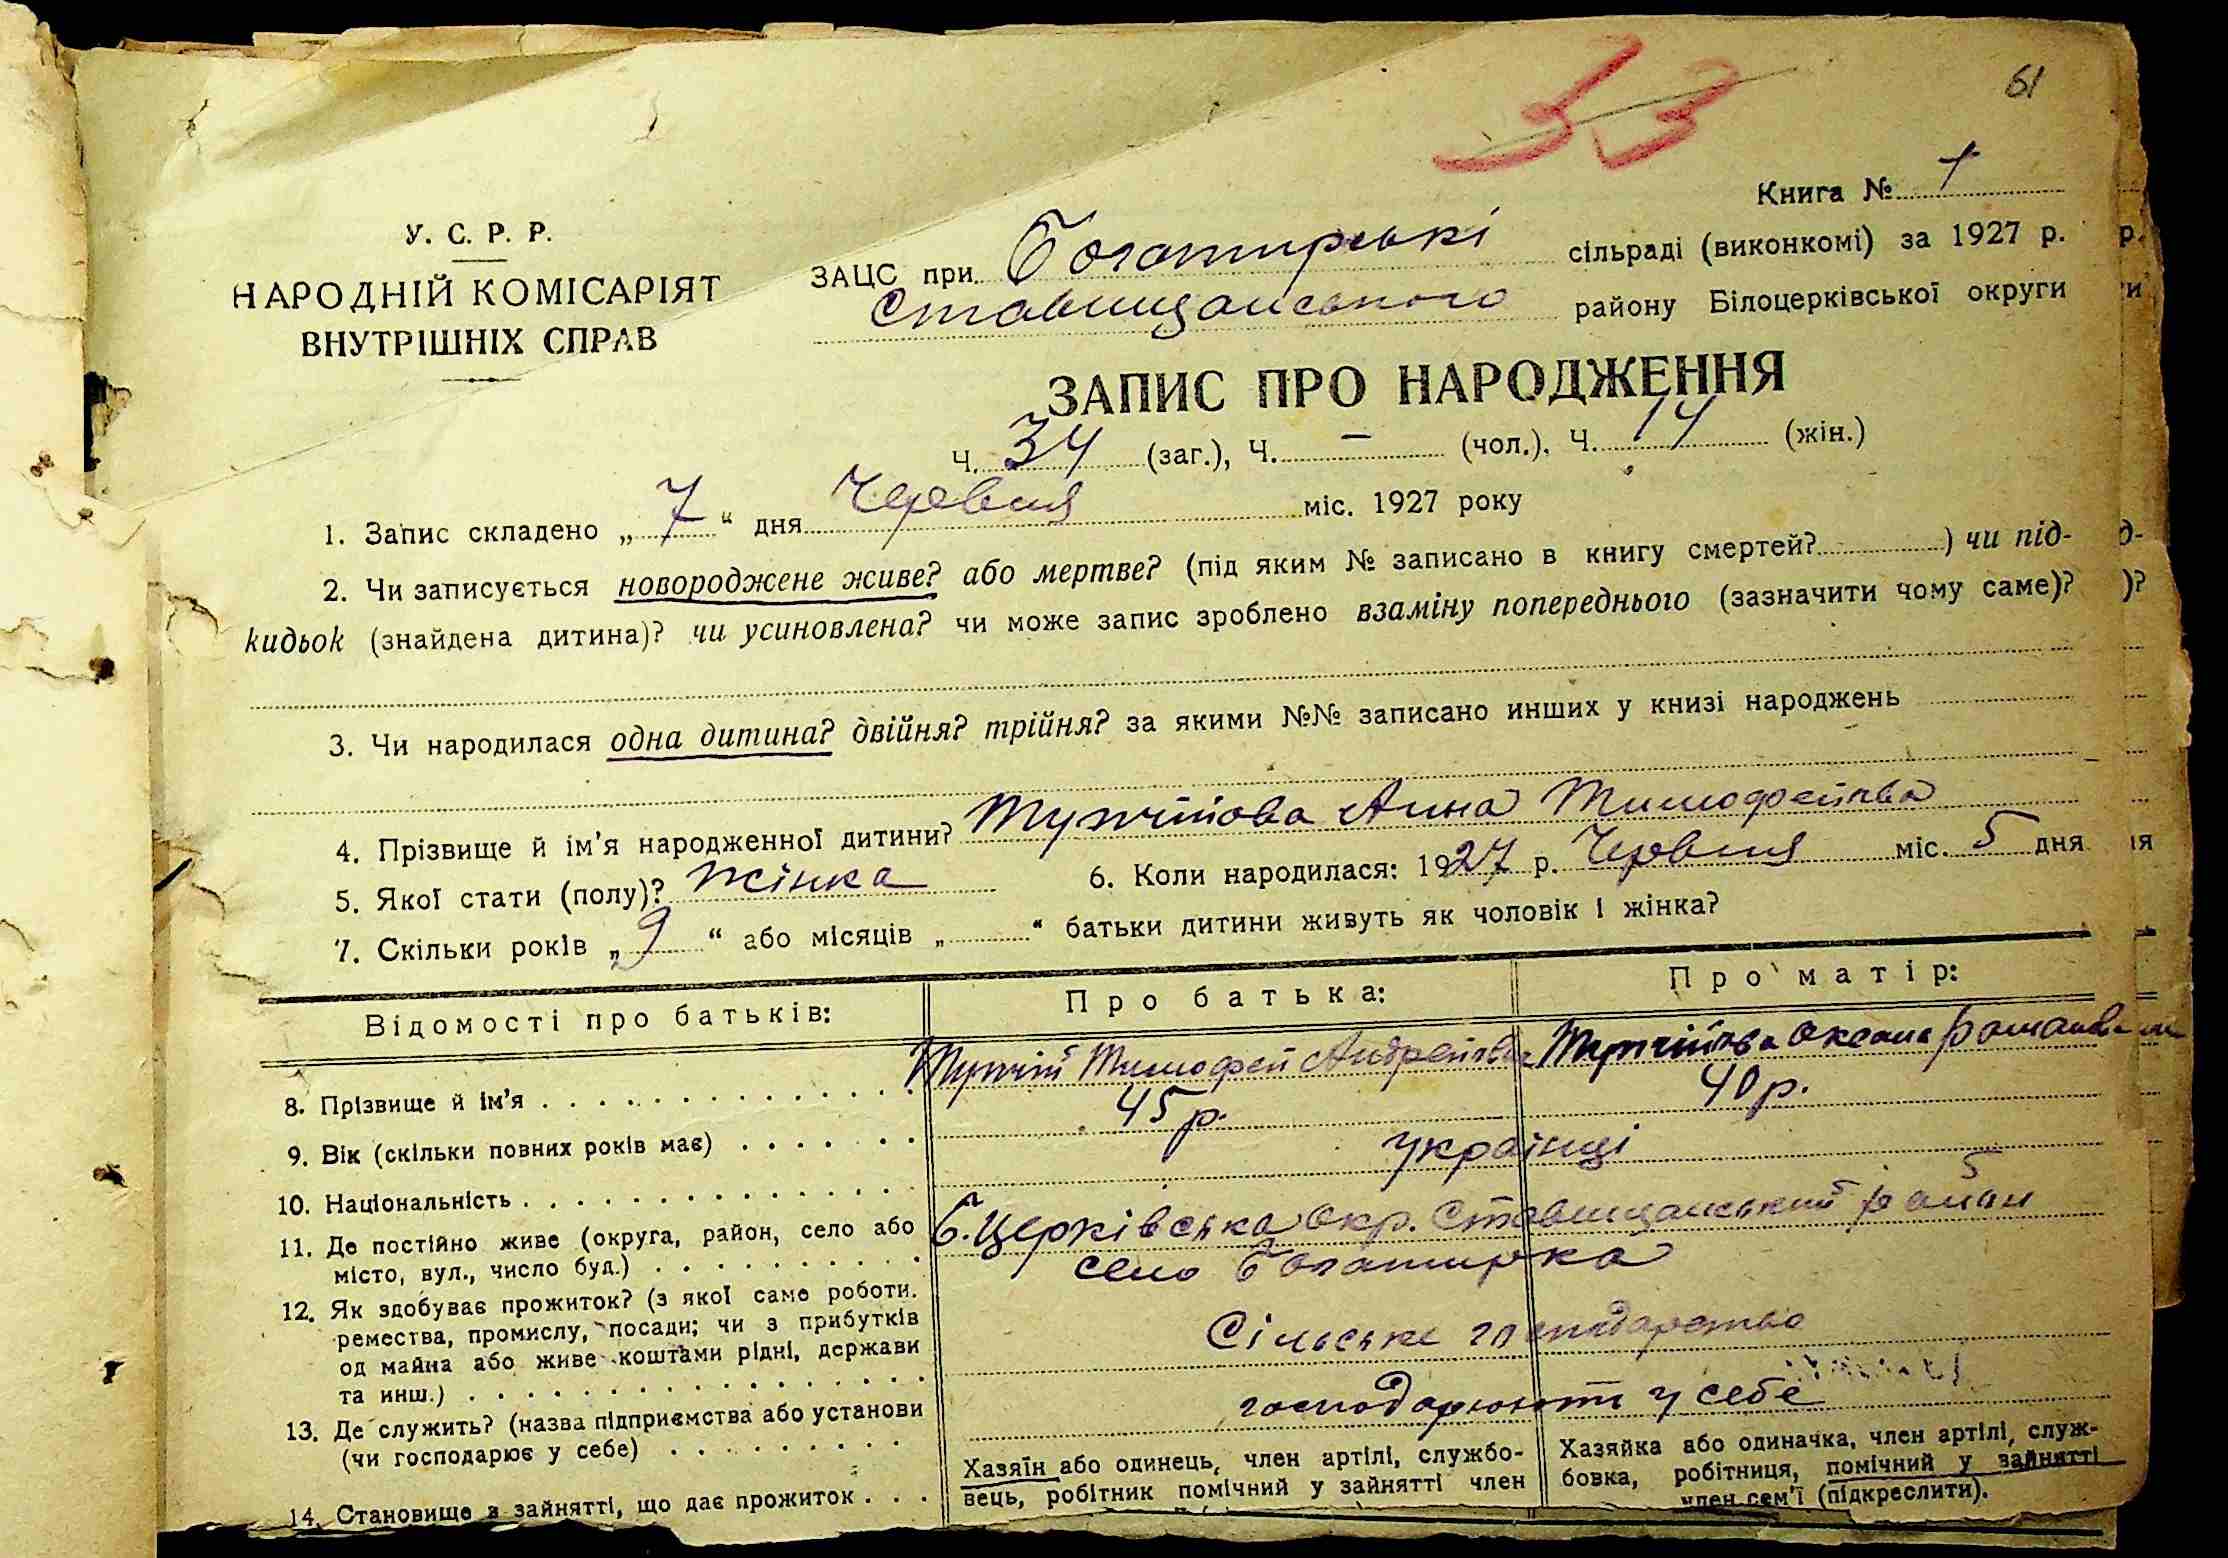 33
61
Книга № 1
У. С. Р. Р.
НАРОДНІЙ КОМІСАРІЯТ
ВНУТРІШНІХ СПРАВ
ЗАЦС при Богатирські сільраді (виконкомі) за 1927 р.
Ставищанського району Білоцерківської округи
ЗАПИС ПРО НАРОДЖЕННЯ
Ч. 34 (заг.), Ч. – (чол.), Ч. 14 (жін.)
1. Запис складено „ 7 “ дня Червня міс. 1927 року
2. Чи записується новороджене живе? або мертве? (під яким № записано в книгу смертей? ) чи під-
кидьок (знайдена дитина)? чи усиновлена? чи може запис зроблено взаміну попереднього (зазначити чому саме)?
3. Чи народилася одна дитина? двійня? трійня? за якими №№ записано инших у книзі народжень
4. Прізвище й ім'я народженної дитини? Анна Тимофеївва
5. Якої стати (полу)? жінка 6. Коли народилася: 1927 р. Червня міс. 5 дня
7. Скільки років „ 9 “ або місяців „ “ батьки дитини живуть як чоловік і жінка?
Відомості про батьків: Про батька: Про матір:
8. Прізвище й ім'я Тимофей Оксана
9. Вік (скільки повних років має) 45 р. 40 р.
10. Національність українці
11. Де постійно живе (округа, район, село або
місто, вул., число буд.)
Б. Церківська Окр. Ставищанський район
село Богатирка
12. Як здобуває прожиток? (з якої саме роботи.
ремества, промислу, посади; чи з прибутків
од майна або живе коштами рідні, держави
та инш.)
Сільське господарство
13. Де служить? (назва підприємства або установи
(чи господарює у себе)
господарюють у себе
14. Становище в зайнятті, що дає прожиток
Хазяїн або одинець, член артілі, службо-
вець, робітник помічний у зайнятті член
Хазяйка або одиначка, член артілі, служ-
бовка, робітниця, помічний у зайнятті
член сем'ї (підкреслити).